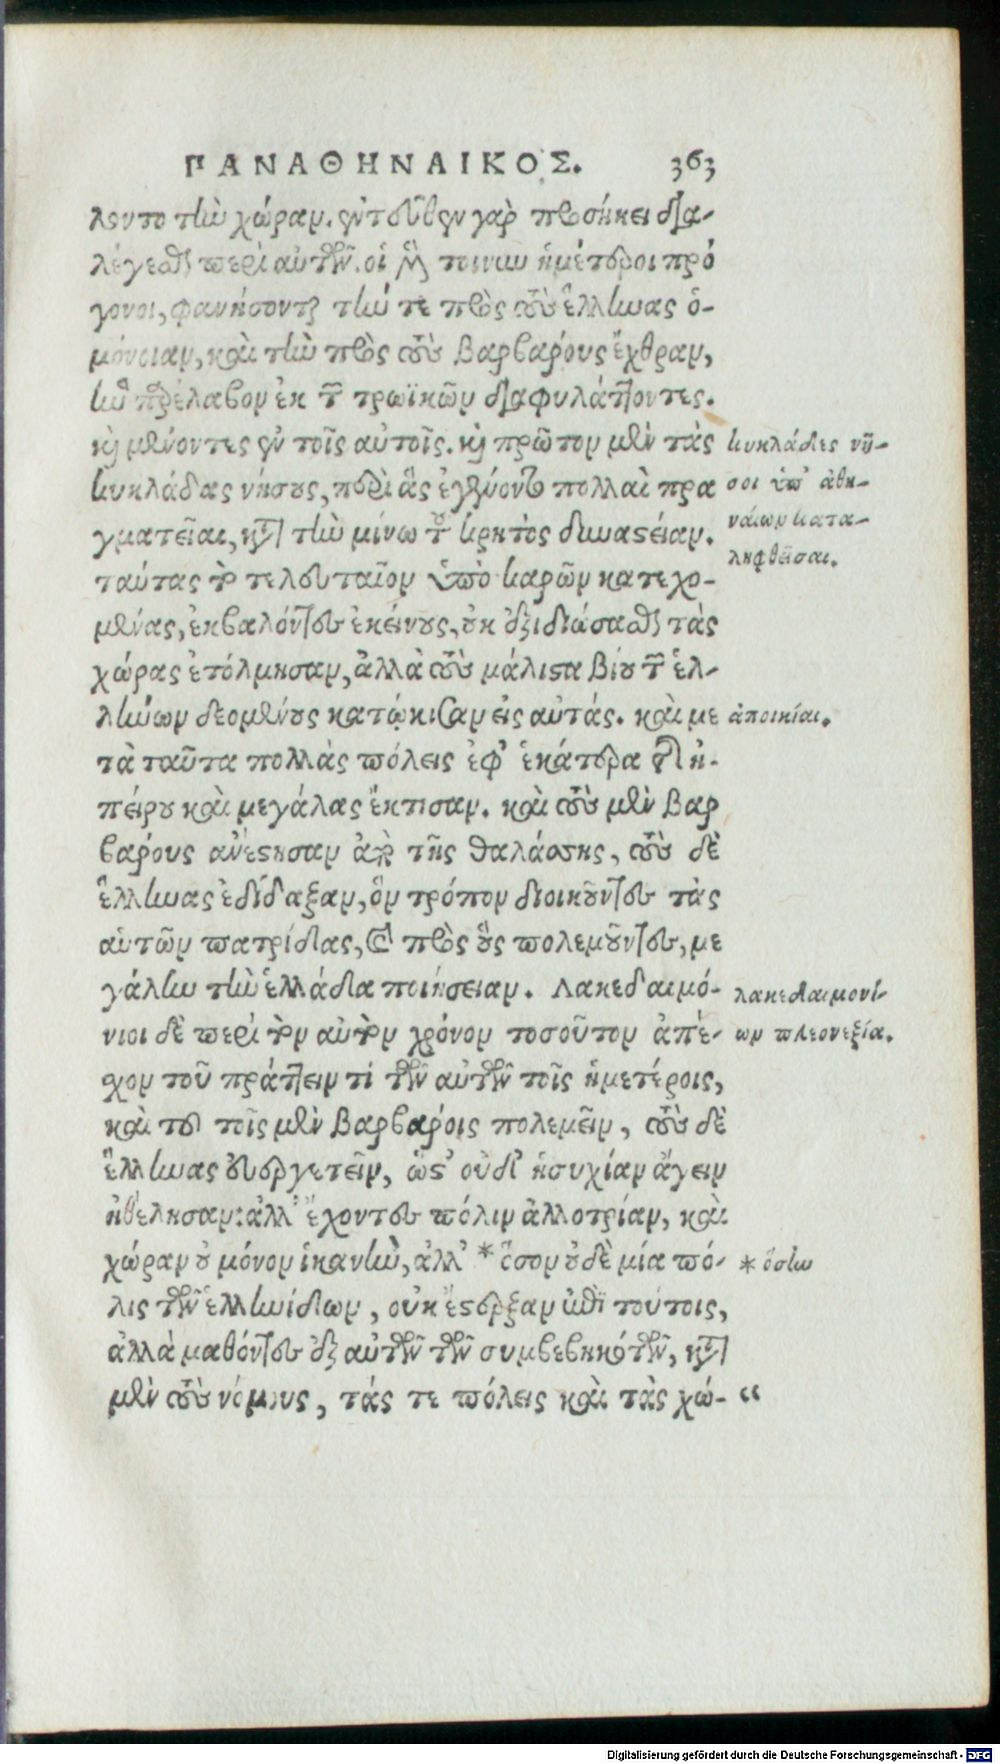 ΠΑΝΑΘΗΝΑΙΚΟΣ. 363
λοντο τὴν χώραν. ἐντεῦθεν γὰρ προσήκει δια-
λέγεσθαι περὶ αὐτῶν. οἱ μὲν τοίνυν ἡμέτεροι πρό
γονοι, φανήσονται τήν τε πρὸς τοὺς ἕλληνας ὁ-
μόνοιαν, καὶ τὴν πρὸς τοὺς βαρβάρους ἔχθραν,
ἣν παρέλαβον ἐκ τῶν τρωϊκῶν διαφυλάττοντες.
καὶ μένοντες ἐν τοῖς αὐτοῖς. καὶ πρῶτον μὲν τὰς
κυκλάδας νήσους, περὶ ἃς ἐγένοντο πολλαὶ πρα
γματεῖαι, κατὰ τὴν μίνω τοῦ κρητὸς δυναστείαν.
ταύτας τὸ τελευταῖον ὑπὸ καρῶν κατεχο-
μένας, ἐκβαλόντες ἐκείνους, οὐκ ἐξιδιώσασθαι τὰς
χώρας ἐτόλμησαν, ἀλλὰ τοὺς μάλιστα βίου τῶν ἑλ-
λήνων δεομένους κατῴκισαν εἰς αὐτάς. καὶ με
τὰ ταῦτα πολλὰς πόλεις ἐφ' ἑκάτερα τῆς ἠ-
πείρου καὶ μεγάλας ἔκτισαν. καὶ τοὺς μὲν βαρ
βάρους ἀνέστησαν ἀπὸ τῆς θαλάσσης, τοὺς δὲ
ἕλληνας ἐδίδαξαν, ὃν τρόπον διοικοῦντες τὰς
αὑτῶν πατρίδας, καὶ πρὸς οὓς πολεμοῦντες, με
γάλην τὴν ἑλλάδα ποιήσειαν. Λακεδαιμό-
νιοι δὲ περὶ τὸν αὐτὸν χρόνον τοσοῦτον ἀπέ-
χον τοῦ πράττειν τι τῶν αὐτῶν τοῖς ἡμετέροις,
καὶ τοῦ τοῖς μὲν βαρβάροις πολεμεῖν, τοὺς δὲ
ἕλληνας εὐεργετεῖν, ὥστ' οὐδ' ἡσυχίαν ἄγειν
ἠθέλησαν: ἀλλ' ἔχοντες πόλιν ἀλλοτρίαν, καὶ
χώραν οὐ μόνον ἱκανὴν, ἀλλ' * ὅσον οὐδὲ μία πό-
λις τῶν ἑλληνίδων, οὐκ ἔστερξαν ἐπὶ τούτοις,
ἀλλὰ μαθόντες ἐξ αὐτῶν τῶν συμβεβηκότων, κατὰ
μὲν τοὺς νόμους, τάς τε πόλεις καὶ τὰς χώ- “
κυκλάδες νῆ-
σοι ὑπ' ἀθη-
ναίων κατα-
ληφθεῖσαι.
ἀποικίαι.
λακεδαιμονί-
ων πλεονεξία.
* ὅσην
Digitalisierung gefördert durch die Deutsche Forschungsgemeinschaft - DFG